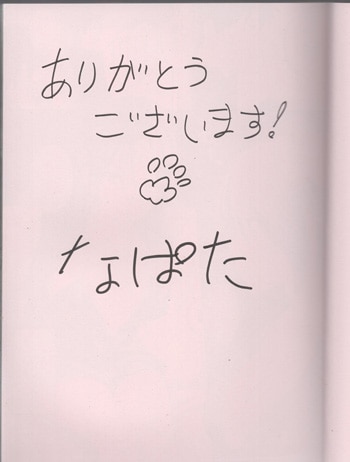 ありがとう
ございます!
なぱた